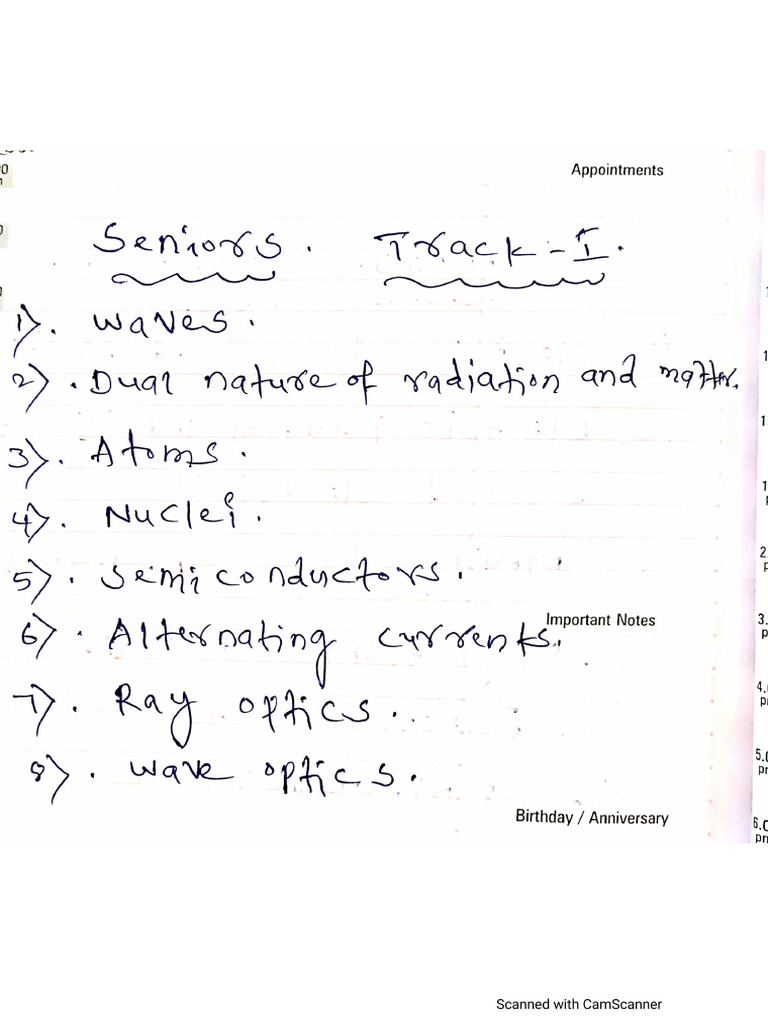 Appointments
Seniors. Track-I.
1). Waves.
2). Dual nature of radiation and matter.
3). Atoms.
4). Nuclei.
5). Semiconductors.
Important Notes
6). Alternating currents.
7). Ray optics.
8). Wave optics.
Birthday / Anniversary
Scanned with CamScanner